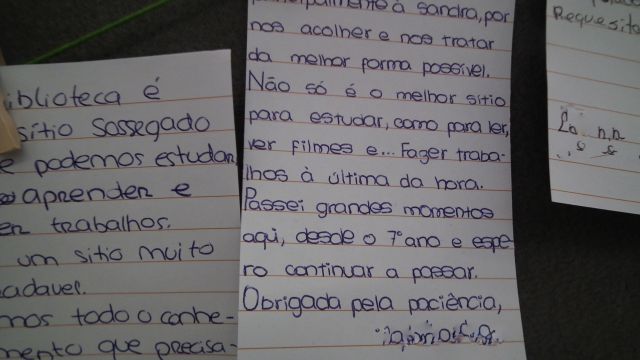 iblioteca é
sítio sossegado
e podemos estudar
aprender e
er trabalhos.
um sitio muito
adavel.
mos todo o conhe-
mento que precisa-
cipalmente à sandra, por
nos acolher e nos tratar
da melhor forma possível.
Não só é o melhor sitio
para estudar, como para ler,
ver filmes e... Fazer traba-
lhos à última da hora.
Passei grandes momentos
aqui, desde o 7º ano e espe-
ro continuar a passar.
Obrigada pela paciência,
Requesita